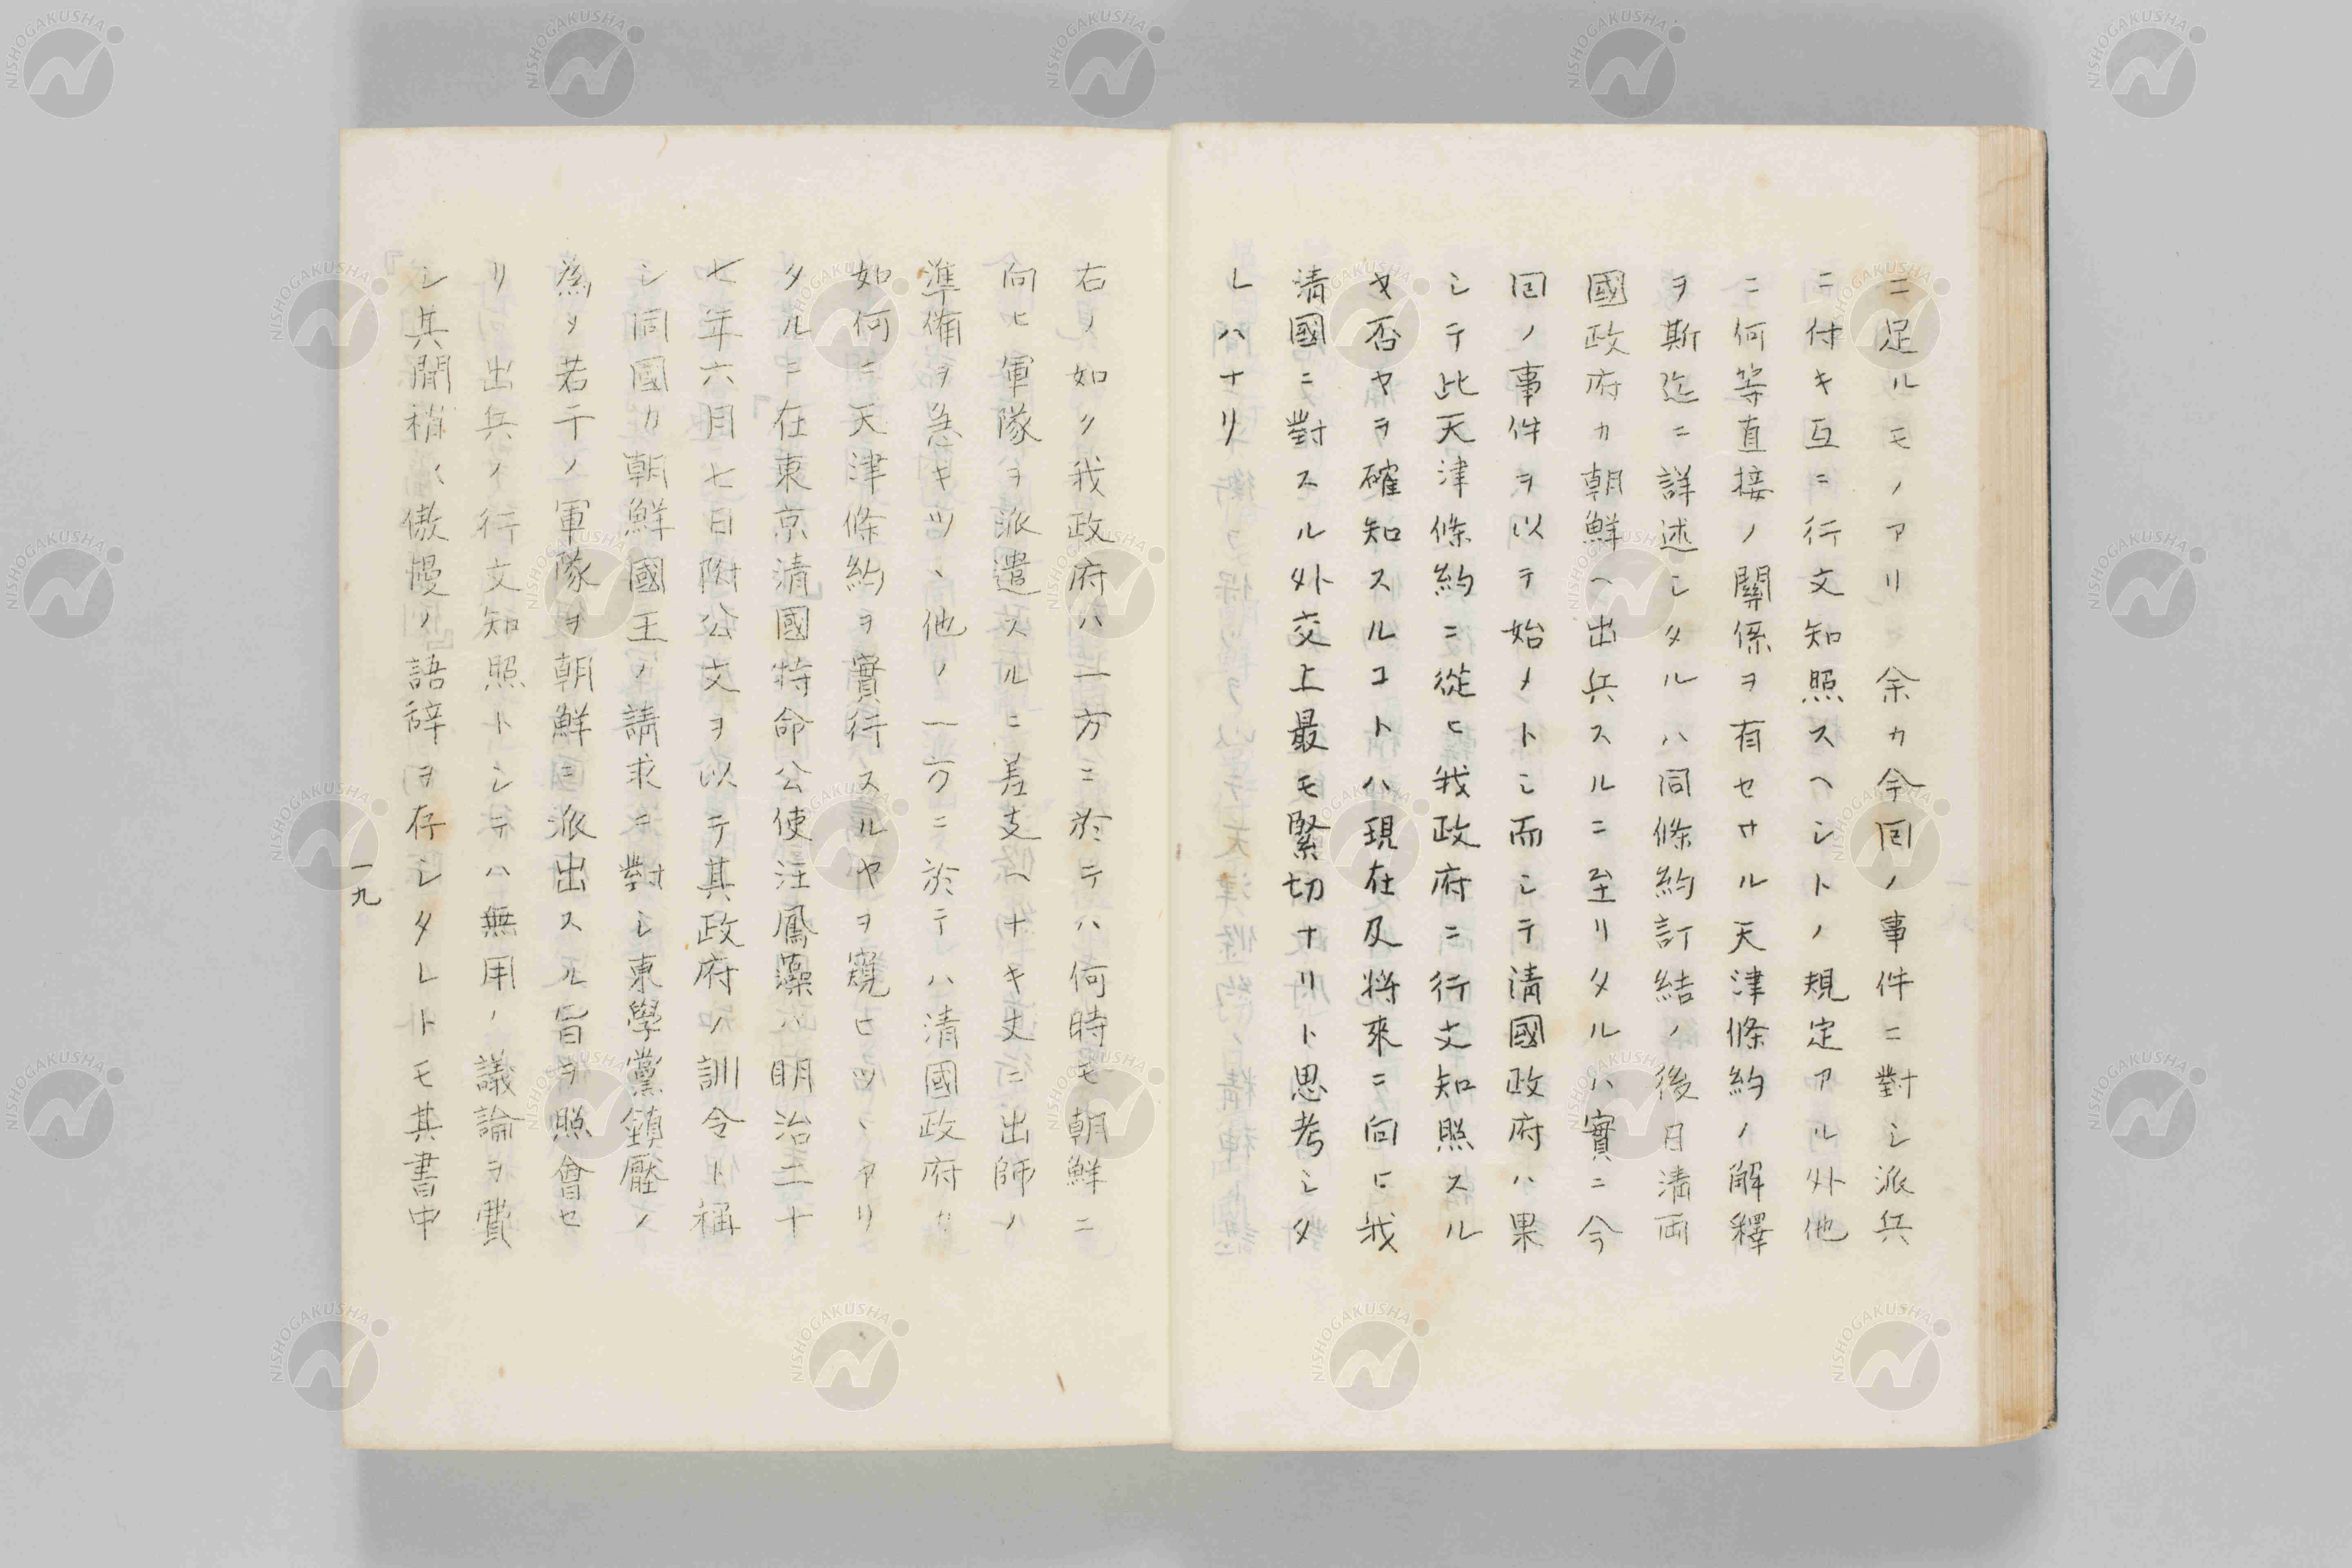 ニ足ルモノアリ 余カ今囘ノ事件ニ對シ派兵
ニ付キ互ニ行文知照スヘシトノ規定アル外他
ニ何等直接ノ關係ヲ有セサル天津條約ノ解釋
ヲ斯迄ニ詳述シタルハ同條約訂結ノ後日淸両
國政府カ朝鮮ヘ出兵スルニ至リタルハ實ニ今
囘ノ事件ヲ以テ始メトシ而シテ淸國政府ハ果
シテ此天津條約ニ從ヒ我政府ニ行文知照スル
ヤ否ヤヲ確知スルコトハ現在及将來ニ向ヒ我
淸國ニ對スル外交上最モ緊切ナリト思考シタ
レハナリ
右ノ如ク我政府ハ一方ニ於テハ何時モ朝鮮ニ
向ヒ軍隊ヲ派遣スルニ差支ヘナキ丈ニ出師ノ
準備ヲ急キツヽ他ノ一方ニ於テハ清國政府カ
如何ニ天津條約ヲ實行スルヤヲ窺ヒツヽアリ
タルニ在東京清國特命公使汪鳳藻ハ明治二十
七年六月七日附公文ヲ以テ其政府ノ訓令ト稱
シ同國カ朝鮮國王ノ請求ニ對シ東學黨鎮壓ノ
為メ若干ノ軍隊ヲ朝鮮ニ派出スル旨ヲ照會セ
リ 出兵ノ行文知照トシテハ無用ノ議論ヲ費
シ其間稍〻傲慢ノ語辞ヲ存シタレトモ其書中
一九
NISHOGAKUSHA